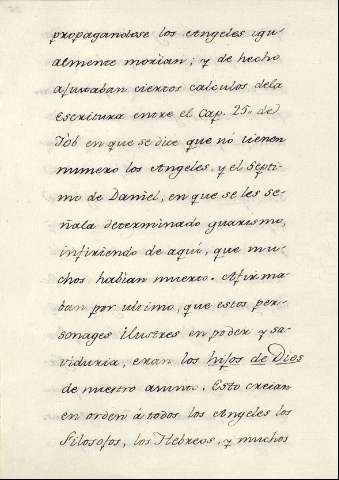 propagandose los Angeles igu-
almente morian; y de hecho
ajustaban ciertos calculos dela
Escritura entre el Cap. 25. de
Job en que se dice que nó tienen
numero los Angeles, y el Septi-
mo de Daniel, en que se les se-
ñala determinado guarismo,
infiriendo de aquí, que mu-
chos habian muerto. Afirma-
ban por ultimo, que estos per-
sonages ilustres en poder y sa-
viduria, eran los hijos de Dios
de nuestro asunto. Esto creian
en orden á todos los Angeles los
Filosofos, los Hebreos, y muchos